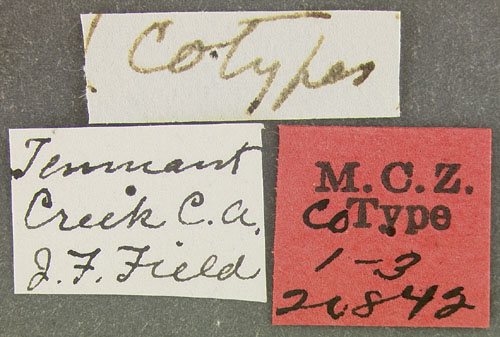 Cotypes
Tennant
Creek C.A.
J.F. Field
M.C.Z.
Co. Type
1-3
20842